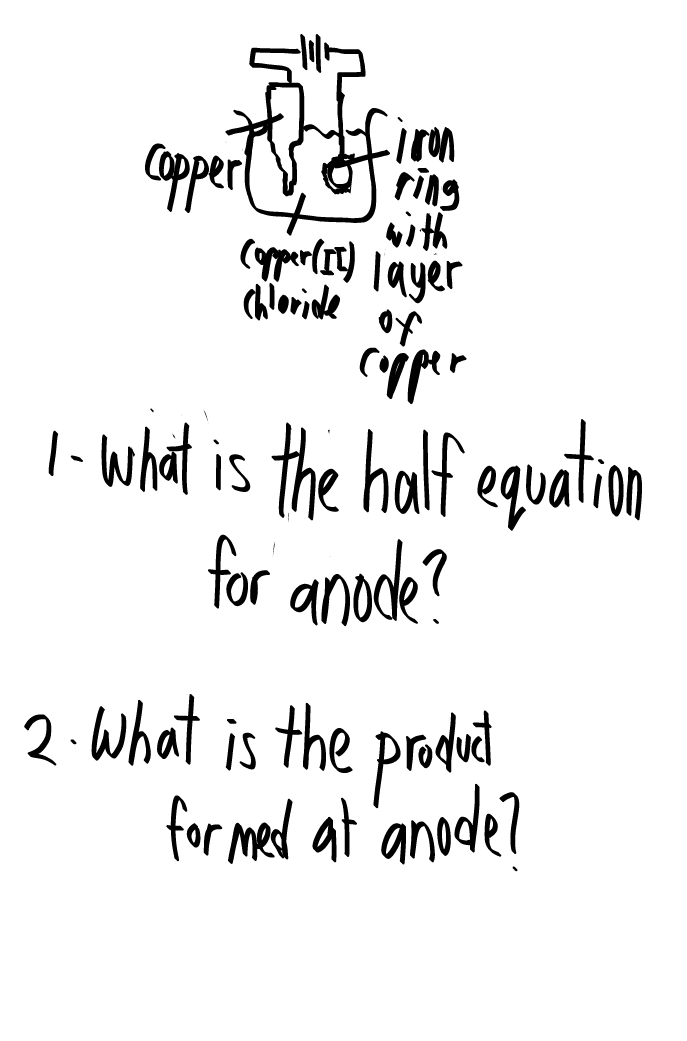 copper
iron
ring
with
layer
of
copper
copper(II)
chloride
1- What is the half equation
for anode?
2. What is the product
formed at anode?